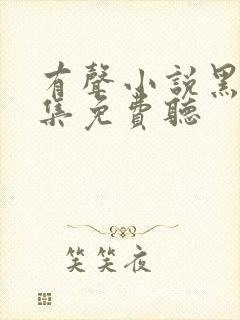 有聲小說黑
集免費聽
笑笑夜